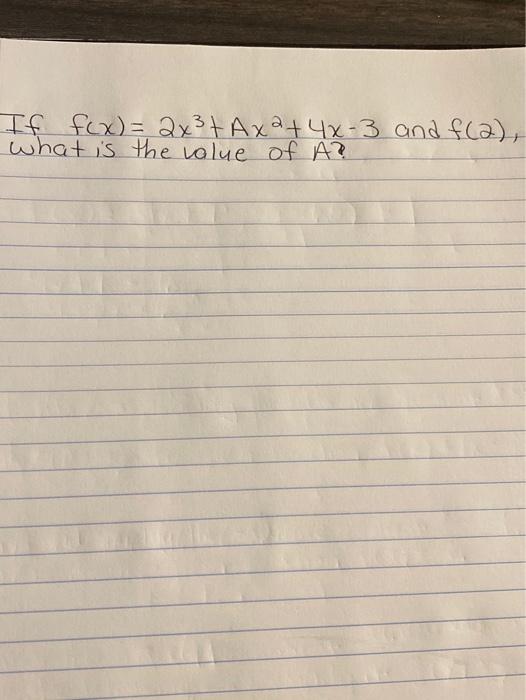 If f(x) = 2x³ + Ax² + 4x - 3 and f(2),
what is the value of A?